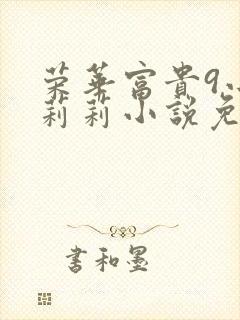 荣華富貴9
莉莉小說免
書和墨